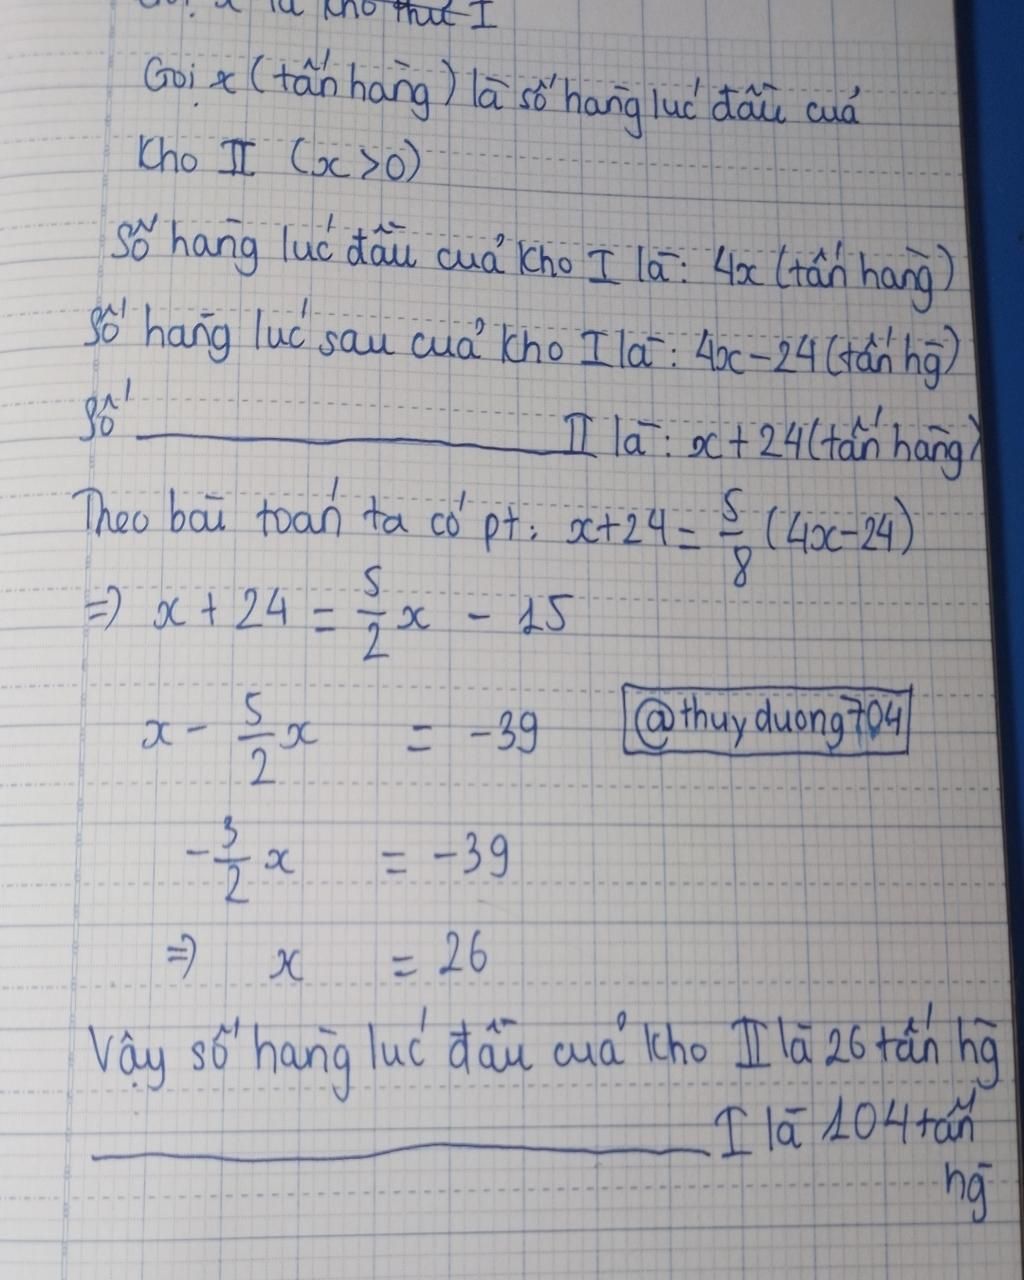 Gọi x là kho thứ I
Gọi x (tấn hàng) là số hàng lúc đầu của
Kho II (x > 0)
Số hàng lúc đầu của Kho I là: 4x (tấn hàng)
Số hàng lúc sau của kho I là: 4x - 24 (tấn hg)
Số ______ II là: x + 24 (tấn hàng)
Theo bài toán ta có pt: x + 24 = 5/8 (4x - 24)
=> x + 24 = 5/2 x - 15
x - 5/2 x = -39
@thuyduong704
-3/2 x = -39
=> x = 26
Vậy số hàng lúc đầu của kho II là 26 tấn hg
______ I là 104 tấn
hg